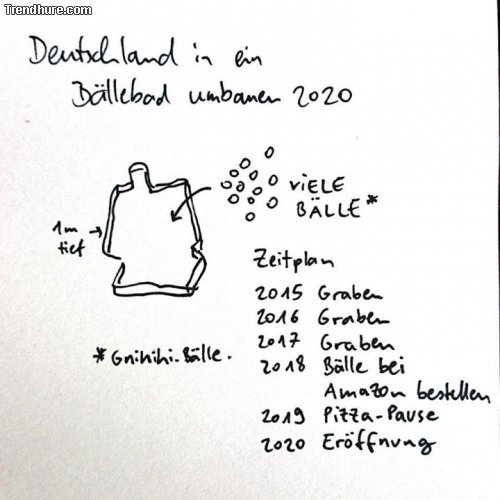 Trendhure.com
Deutschland in ein
Bällebad umbauen 2020
VIELE
BÄLLE*
1m
tief
Zeitplan
2015 Graben
2016 Graben
2017 Graben
2018 Bälle bei
Amazon bestellen
2019 Pizza-Pause
2020 Eröffnung
*Gnihihi-Bälle.